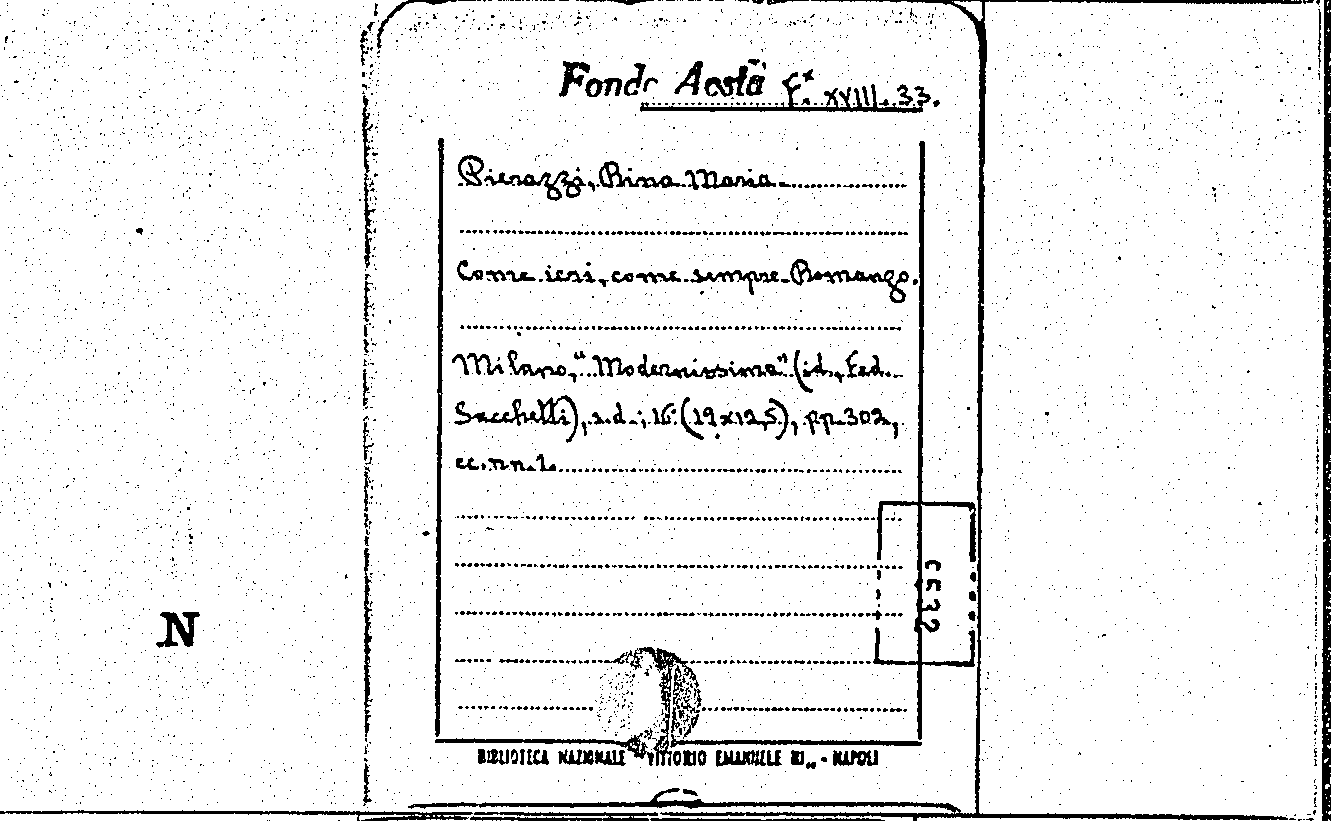 Fondo Aosta F.* XVIII. 33.
Pierazzi, Rina Maria
Come ieri, come sempre. Romanzo.
Milano, "Modernissima" (id., Fed.
Sacchetti), s.d.; 16° (19x12,5), pp. 302,
cc. nn. 1.
N
BIBLIOTECA NAZIONALE "VITTORIO EMANUELE III" - NAPOLI